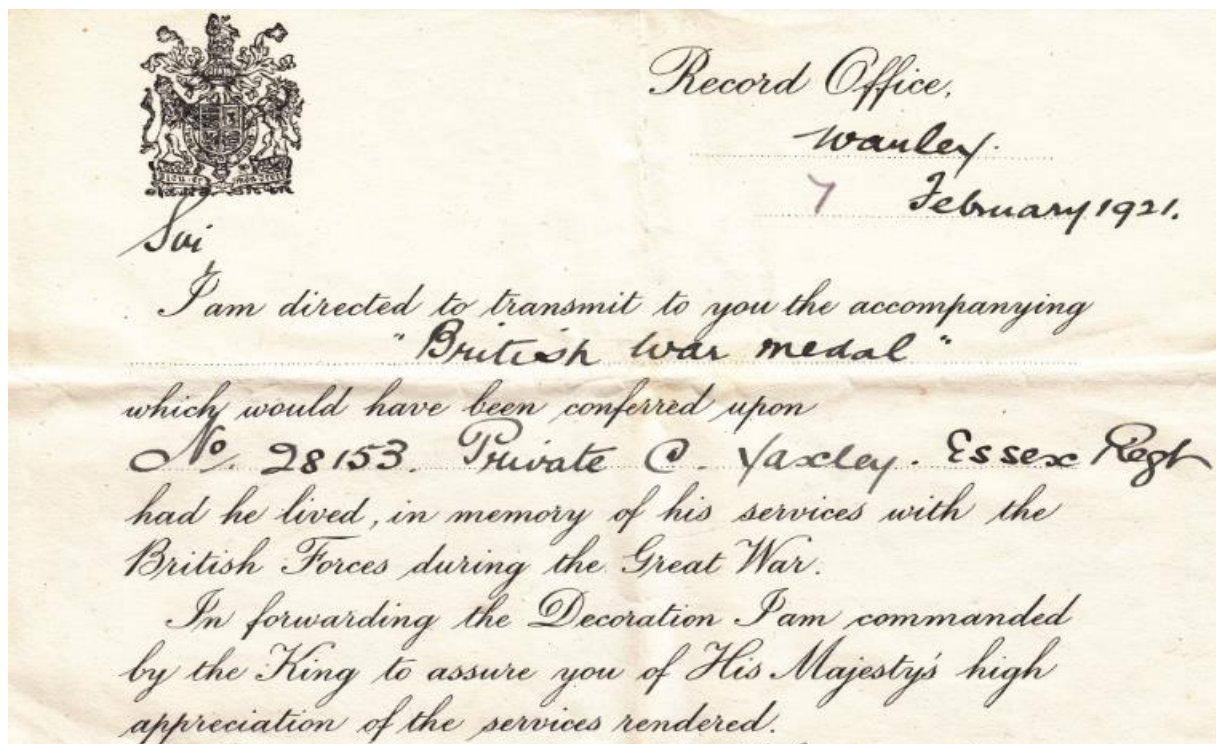 Record Office,
Warley.
7 February 1921.
Sir
I am directed to transmit to you the accompanying
"British War medal"
which would have been conferred upon
No. 28153. Private C. Yaxley. Essex Regt
had he lived, in memory of his services with the
British Forces during the Great War.
In forwarding the Decoration I am commanded
by the King to assure you of His Majesty's high
appreciation of the services rendered.